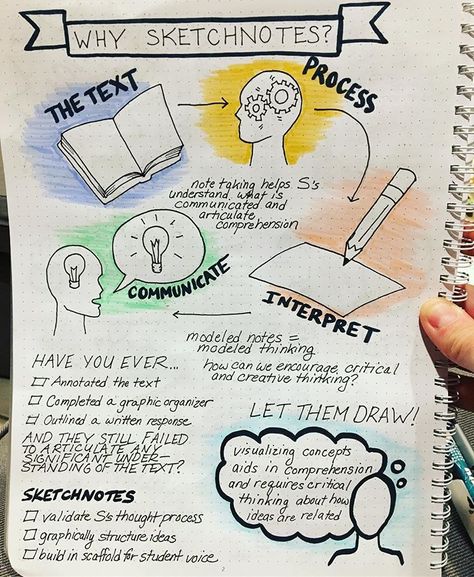 WHY SKETCHNOTES?
THE TEXT
PROCESS
note taking helps S's
understand what is
communicated and
articulate
comprehension
COMMUNICATE
INTERPRET
modeled notes =
modeled thinking
how can we encourage critical
and creative thinking?
HAVE YOU EVER...
Annotated the text
Completed a graphic organizer
Outlined a written response
AND THEY STILL FAILED
TO ARTICULATE ANY
SIGNIFICANT UNDER-
STANDING OF THE TEXT?
SKETCHNOTES
validate S's thought process
graphically structure ideas
build in scaffold for student voice
LET THEM DRAW!
visualizing concepts
aids in comprehension
and requires critical
thinking about how
ideas are related